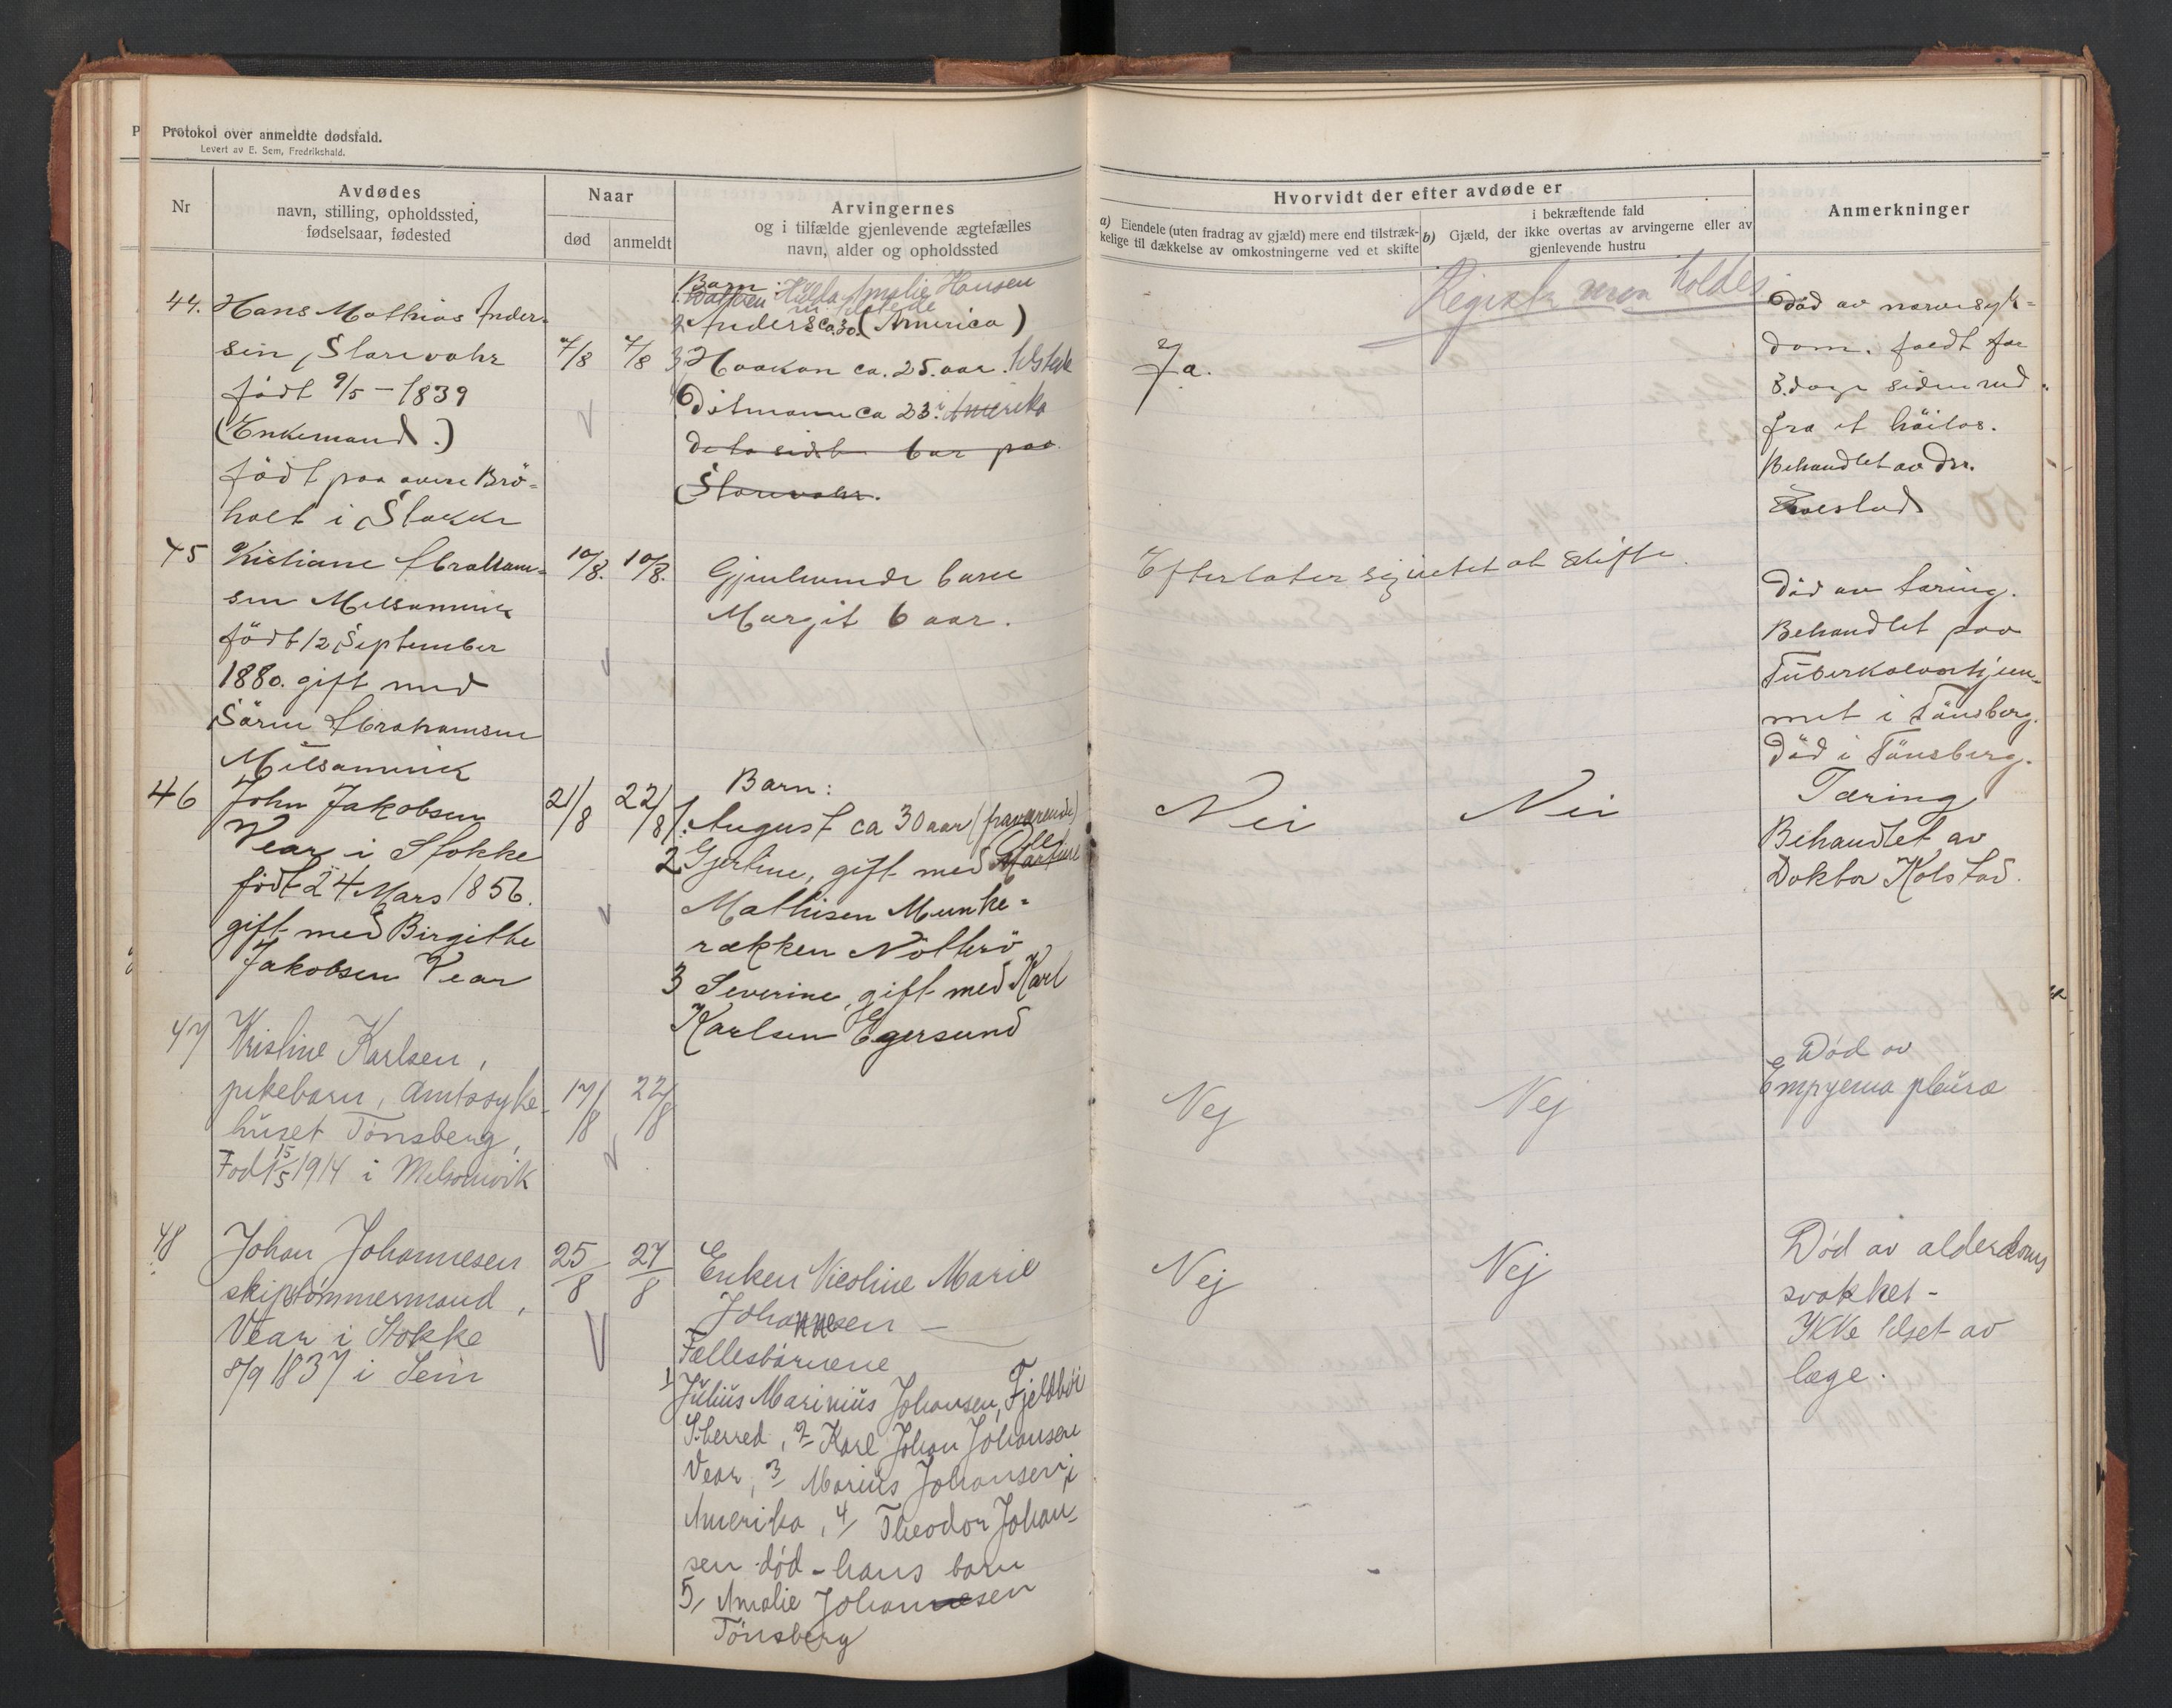 Protokol over anmeldte dødsfald.
Levert av E. Sem, Fredrikshald.
Nr
Avdødes
navn, stilling, opholdssted,
fødselsaar, fødested
Naar
død
anmeldt
Arvingernes
og i tilfælde gjenlevende ægtefælles
navn, alder og opholdssted
Hvorvidt der efter avdøde er
a) Eiendele (uten fradrag av gjæld) mere end tilstræk-
kelige til dækkelse av omkostningerne ved et skifte
i bekræftende fald
b) Gjæld, der ikke overtas av arvingerne eller av
gjenlevende hustru
Anmerkninger
44. Hans Mathias Ander-
sen,
født 9/5 - 1839
(Enkemand.)
født paa øvre Brö-
holt i Stokke
7/8
7/8
Barn:
1. Hilda Amalie Hansen
2. Anders ca 30. (America)
3 Haakon ca. 25. aar.
Ditmann ca 23. Amerika
de to sidste bor paa
Ja.
Registr holdes
Död av nervesyk-
dom. faldt for
3. dage siden ned
fra et höilas.
Behandlet av dr.
45 Kristiane Abraham-
sen Melsomvik
född 12 September
1880. gift med
Sören Abrahamsen
Melsomvik
10/8.
10/8.
Gjenlevende barn
Margit 6 aar.
Efterlater sig intet at skifte.
Död av tæring.
Behandlet paa
Tuberkuloschjem-
met i Tönsberg.
Död i Tönsberg.
46 John Jakobsen
Vear i Stokke
född 24 Mars 1856.
gift med Birgithe
Jakobsen Vear
21/8
22/8
Barn:
1. August ca 30 aar (fraværende)
2. Gjertine, gift med Ole
Mathisen Munke-
rækken Nötterö
3 Severine, gift med Karl
Karlsen Egersund
Nei
Nei
Tæring
Behandlet av
Doktor Kolstad.
47 Kristine Karlsen,
pikebarn, Amtssyke-
huset Tønsberg,
Født 15/5 1914 i Melsomvik
17/8
22/8
Nej
Nej
Død av
Empyema pleura
48 Johan Johannesen
skipstømmermand,
Vear i Stokke
8/9 1837 i Sem
25/8
27/8
Enken Nicoline Marie
Johannesen -
Fællesbarnene
1/ Julius Marinius Johansen, Fjeldbo
S.herred, 2/ Karl Johan Johansen
Vear, 3/ Marius Johansen, i
Amerika, 4/ Theodor Johan-
sen død - hans barn
5/ Amalie Johannesen
Tønsberg
Nej
Nej
Død av alderdoms
svakhet -
Ikke tilset av
læge.